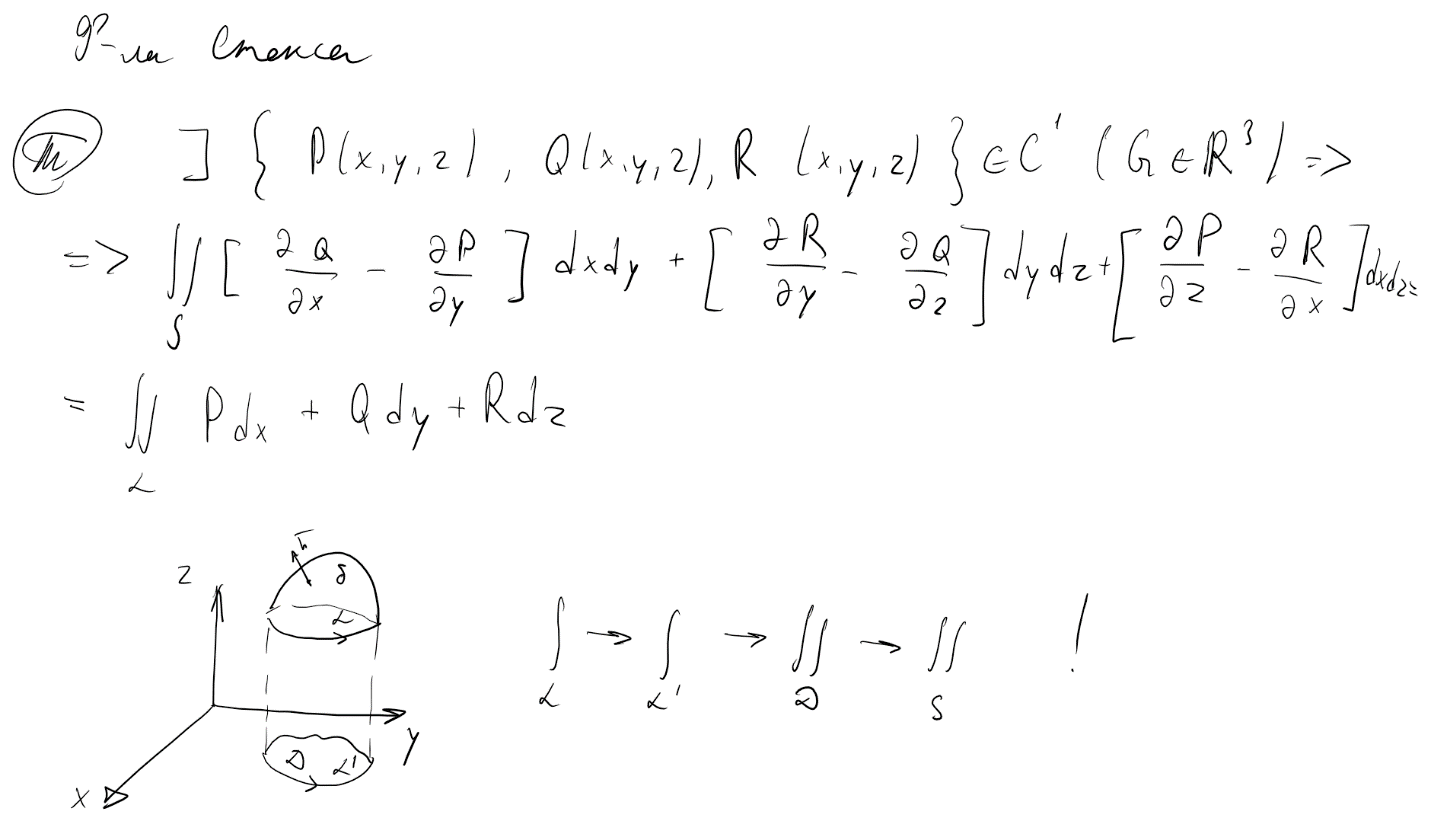 ф-ла Стокса
Th ] { P(x,y,z), Q(x,y,z), R (x,y,z) } ∈ C¹ (G ∈ R³) =>
=> ∬_S [ ∂Q/∂x - ∂P/∂y ] dxdy + [ ∂R/∂y - ∂Q/∂z ] dydz + [ ∂P/∂z - ∂R/∂x ] dxdz =
= ∬_L Pdx + Qdy + Rdz
n̄
z S
L
∫_L → ∫_L' → ∬_D → ∬_S !
D L' y
x